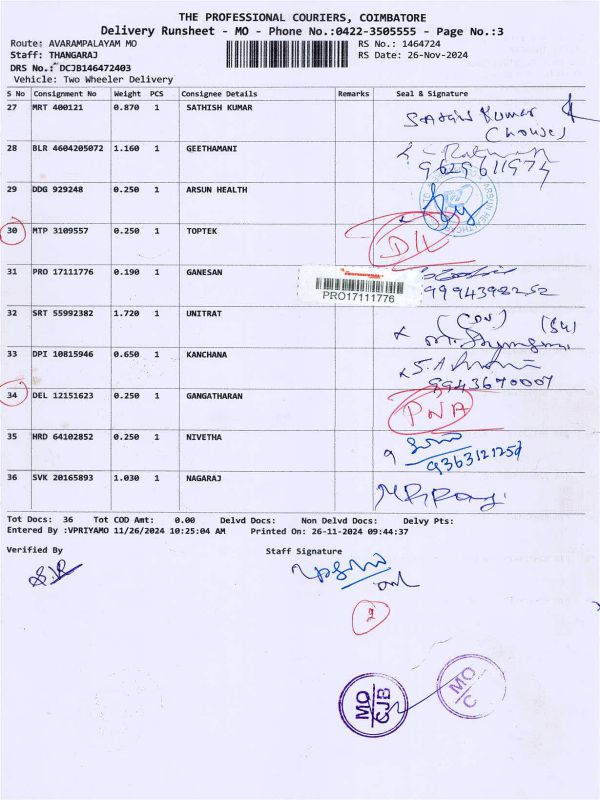 THE PROFESSIONAL COURIERS, COIMBATORE
Delivery Runsheet - MO - Phone No.:0422-3505555 - Page No.:3
Route: AVARAMPALAYAM MO RS No.: 1464724
Staff: THANGARAJ RS Date: 26-Nov-2024
DRS No.: DCJB146472403
Vehicle: Two Wheeler Delivery
S No Consignment No Weight PCS Consignee Details Remarks Seal & Signature
27 MRT 400121 0.870 1 SATHISH KUMAR Kumar
28 BLR 4604205072 1.160 1 GEETHAMANI
9629611974
29 DDG 929248 0.250 1 ARSUN HEALTH
30 MTP 3109557 0.250 1 TOPTEK D/L
31 PRO 17111776 0.190 1 GANESAN
PRO17111776 9994398252
32 SRT 55992382 1.720 1 UNITRAT
33 DPI 10815946 0.650 1 KANCHANA
9943670007
34 DEL 12151623 0.250 1 GANGATHARAN PNA
35 HRD 64102852 0.250 1 NIVETHA
36 SVK 20165893 1.030 1 NAGARAJ
Tot Docs: 36 Tot COD Amt: 0.00 Delvd Docs: Non Delvd Docs: Delvy Pts:
Entered By :VPRIYAMO 11/26/2024 10:25:04 AM Printed On: 26-11-2024 09:44:37
Verified By Staff Signature
2
MO
CJB
MO
C